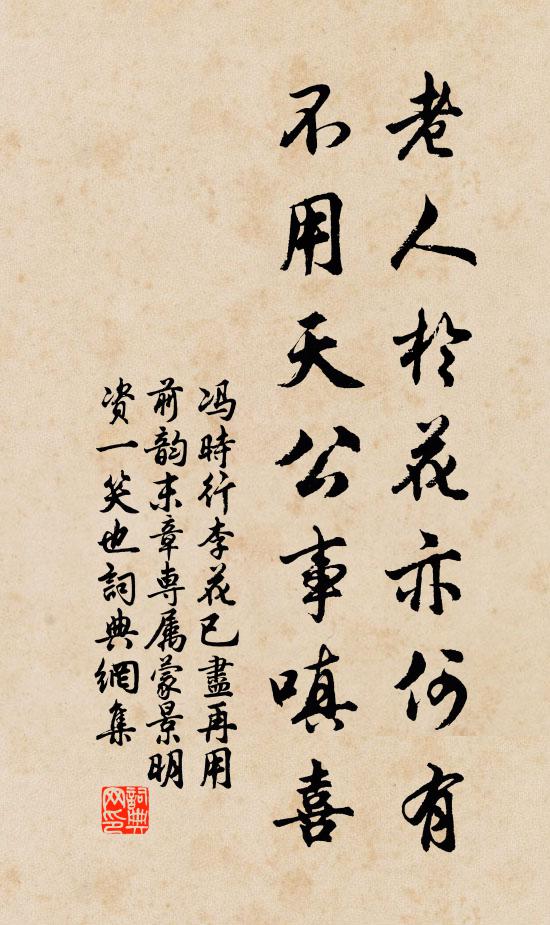 老人於花亦何有
不用天公事嗔喜
冯時行李花已盡再用
前韵末章専属蒙景明
资一笑也詞典網集
詞典
网印